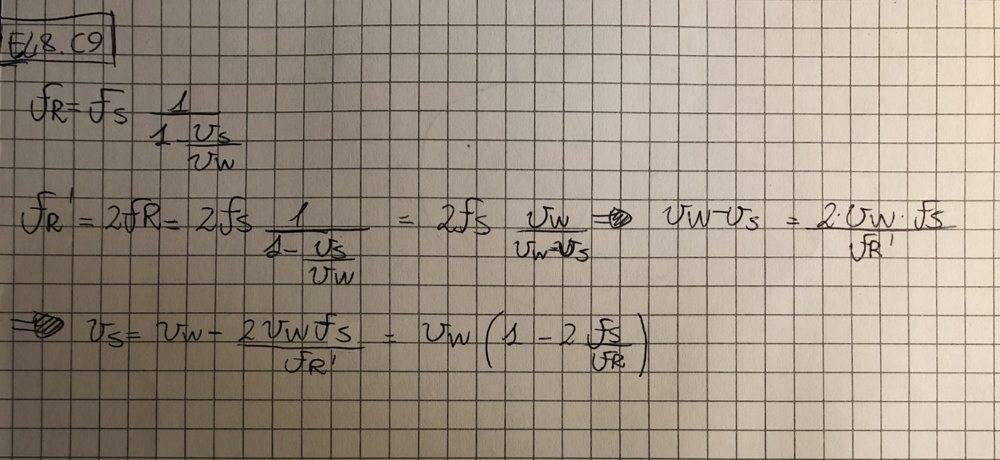 E48.C9
fR = fS 1/(1 - vS/vW)
fR' = 2fR = 2fS 1/(1 - vS/vW) = 2fS vW/(vW-vS) ⇒ vW-vS = 2·vW·fS/fR'
⇒ vS = vW - 2vWfS/fR' = vW (1 - 2 fS/fR)